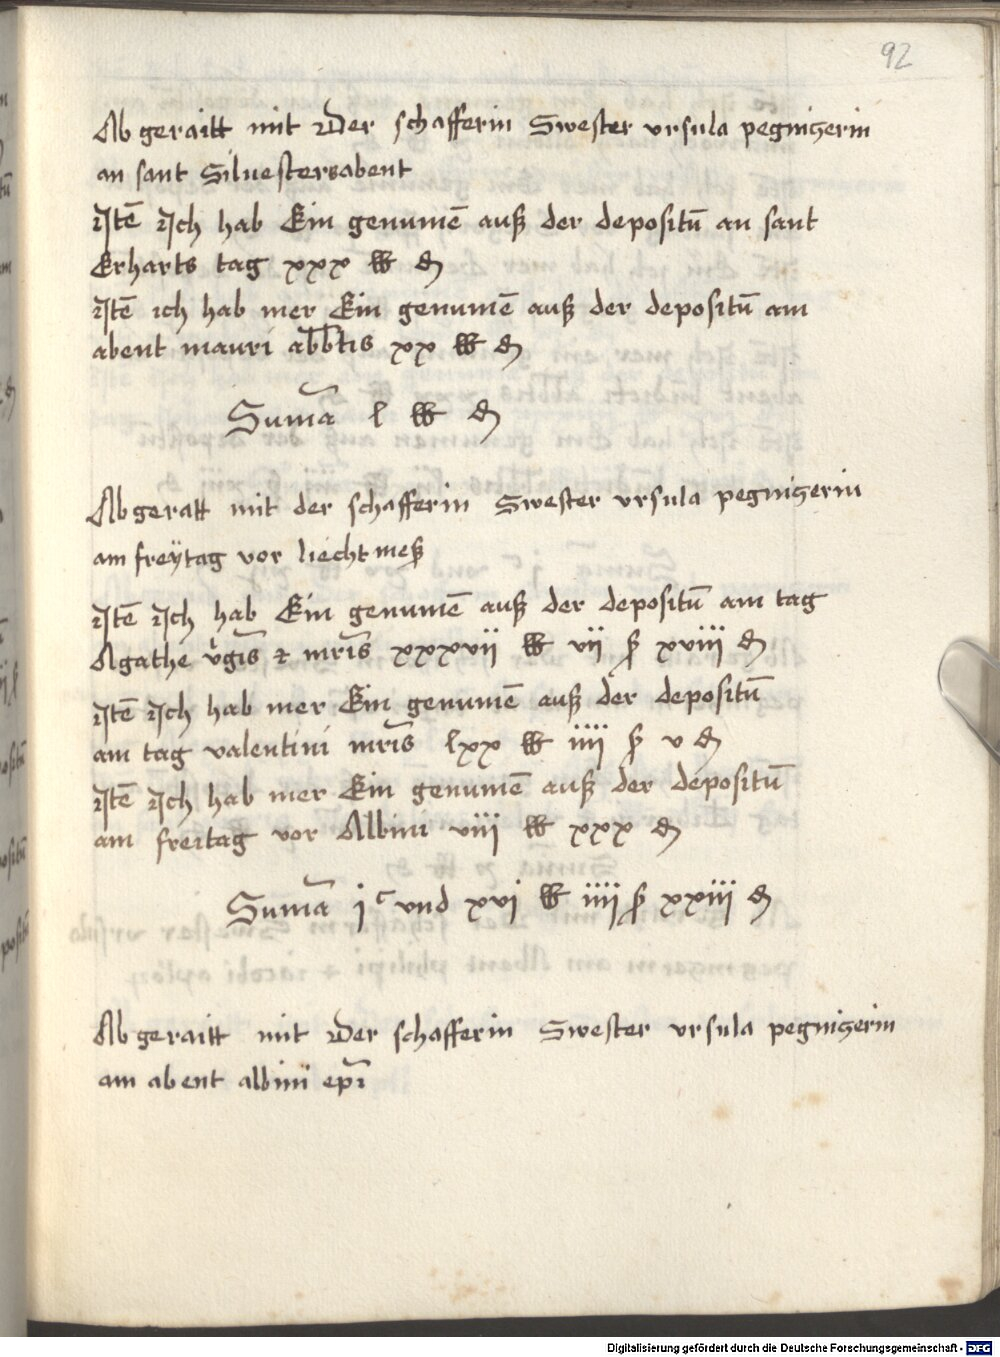 92
Abgeraitt mit Der schafferin Swester vrsula pegnitzerin
an sant Siluestersabent
Jtē Jch hab Ein genumē auß der depositū an sant
Erharts tag xxx ℔ ₰
Jtē ich hab mer Ein genumē auß der depositū am
abent mauri abb̄tis xx ℔ ₰
Sum̄a l ℔ ₰
Abgeratt mit der schafferin Swester vrsula pegnitzerin
am freÿtag vor liechtmeß
Jtē Jch hab Ein genumē auß der depositū am tag
Agathe v̓gīs ⁊ mr̄is xxxvii ℔ vii ß xviii ₰
Jtē Jch hab mer Ein genumē auß der depositū
am tag valentini mr̄is lxx ℔ iiii ß v ₰
Jtē Jch hab mer Ein genumē auß der depositū
am freitag vor Albini viii ℔ xxx ₰
Sum̄a jᶜ vnd xvi ℔ iiii ß xxiii ₰
Abgeraitt mit Der schafferin Swester vrsula pegnitzerin
am abent albini ep̄i
Digitalisierung gefördert durch die Deutsche Forschungsgemeinschaft - DFG